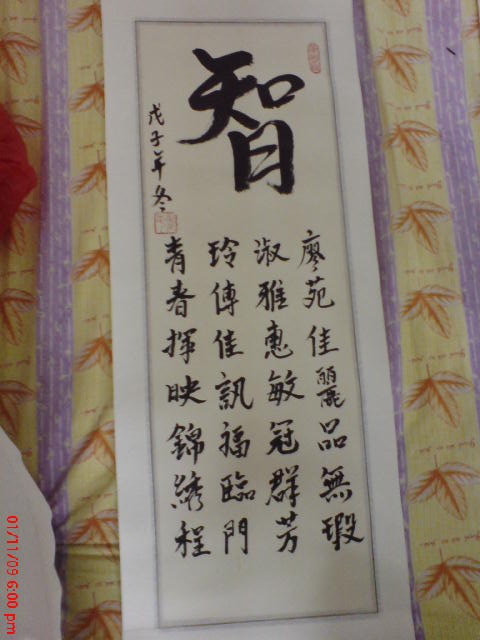 智
廖苑佳麗品無瑕
淑雅惠敏冠群芳
玲傅佳訊福臨門
青春揮映錦綉程
戊子年冬
01/11/09 6:00 pm